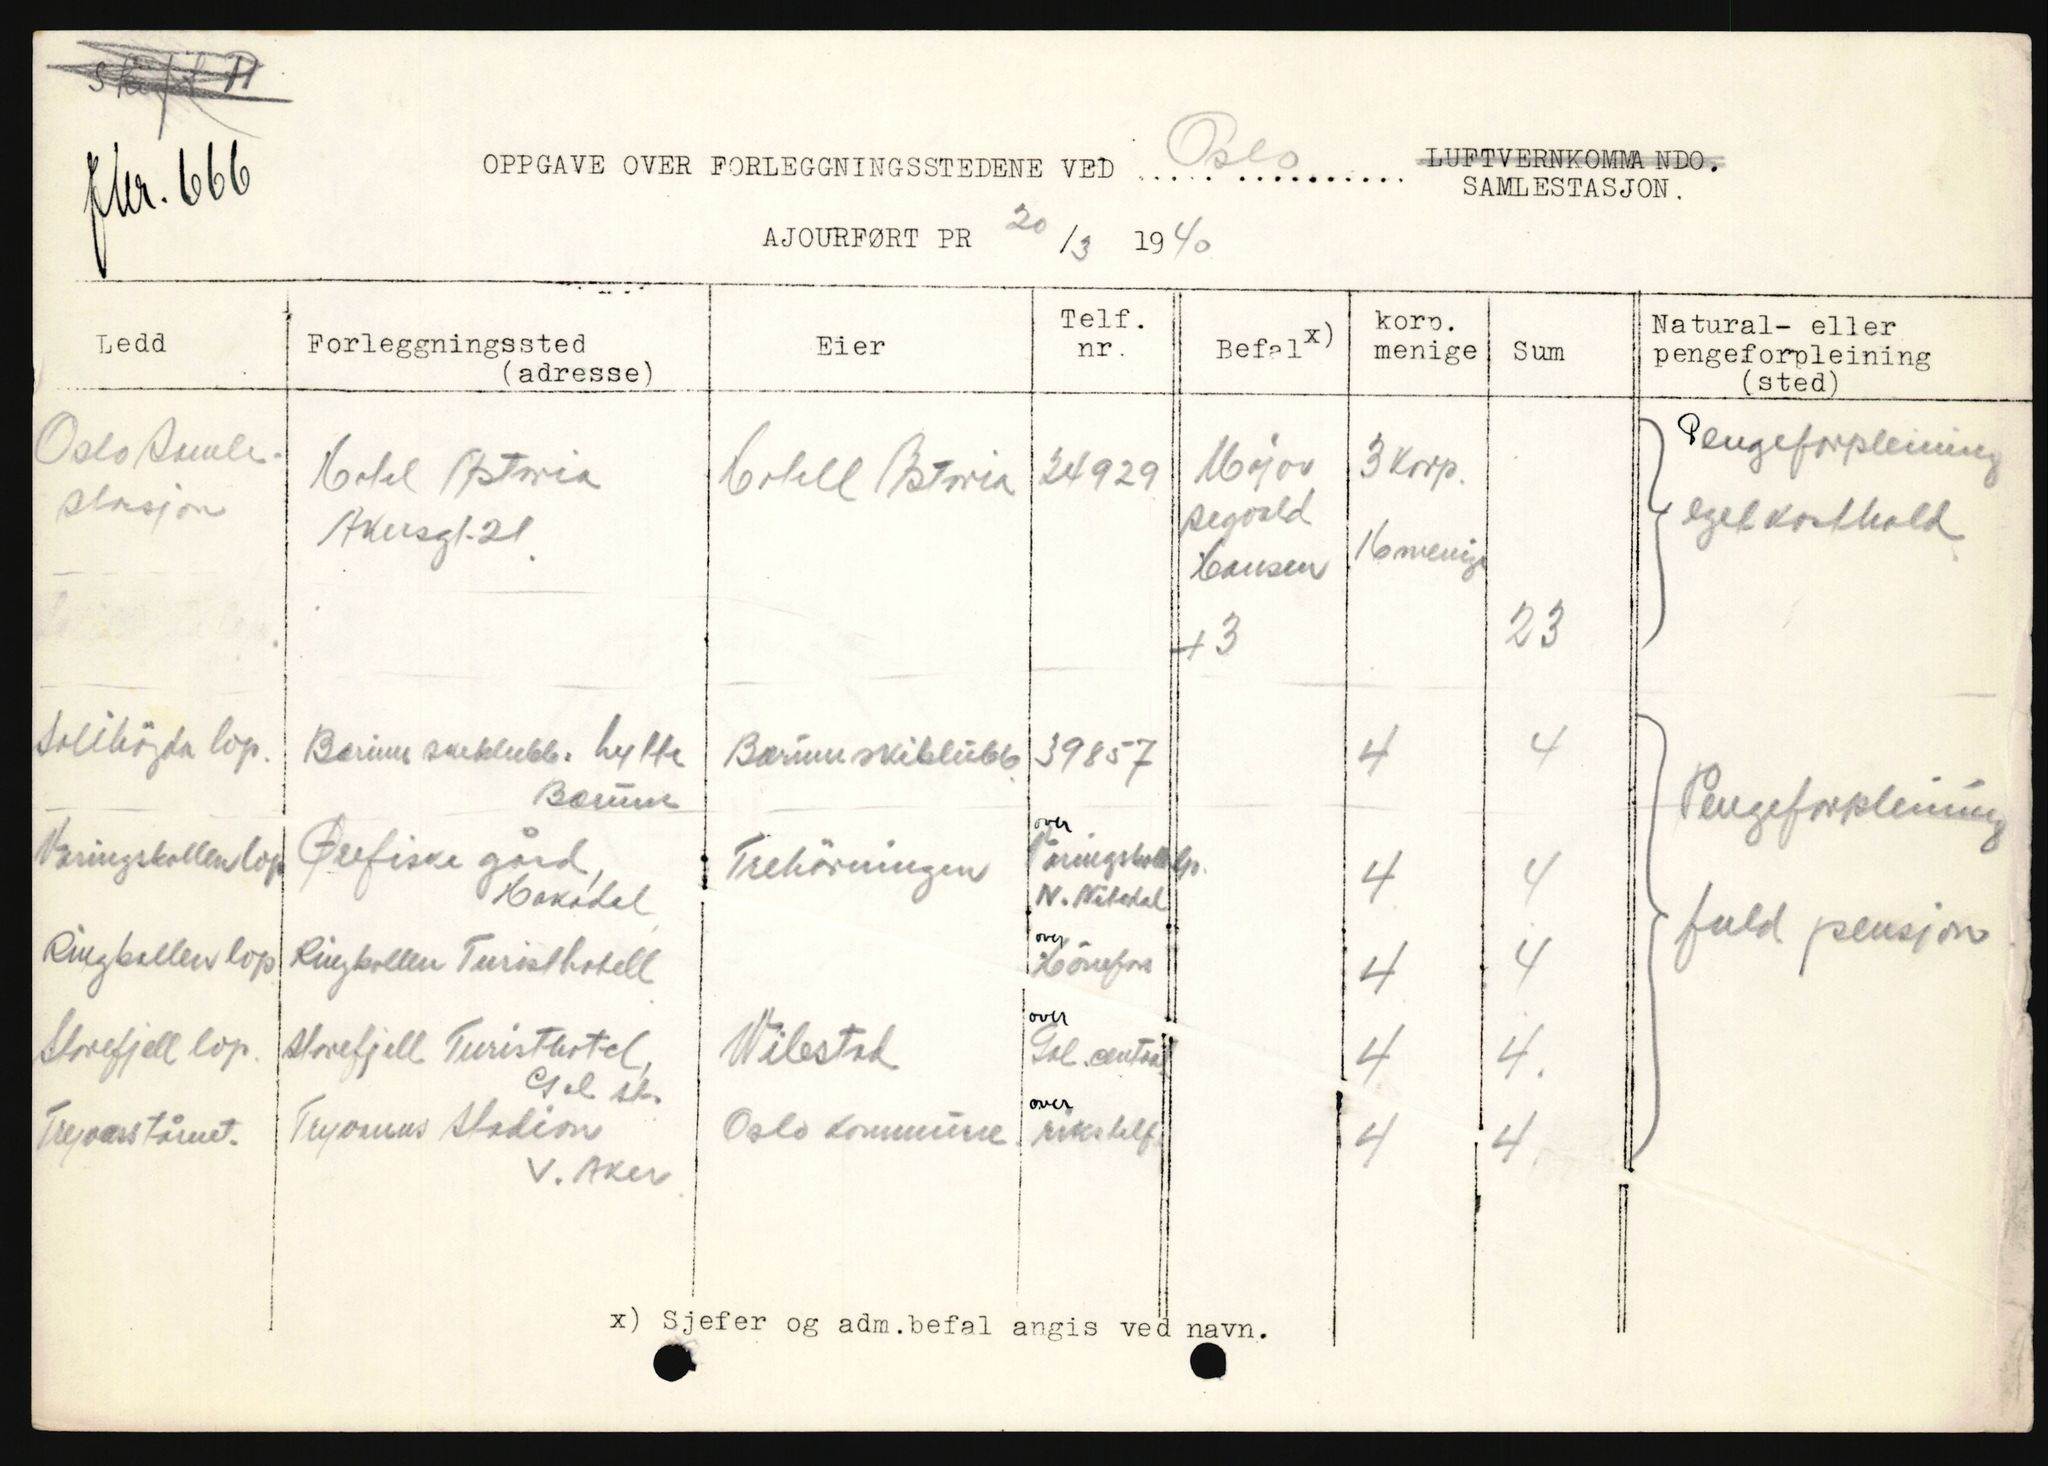 Jnr. 666
OPPGAVE OVER FORLEGGNINGSSTEDENE VED ..... Oslo .......... LUFTVERNKOMMANDO.
SAMLESTASJON.
AJOURFØRT PR 20/3 1940
Ledd
Forleggningssted
(adresse)
Eier
Telf.
nr.
Befal x)
korp.
menige
Sum
Natural- eller
pengeforpleining
(sted)
Oslo Samle-
stasjon
Hotel Astoria
Akersgt. 21.
Hotell Astoria
34929
Major
Segvald
Hansen
+3
3 korp.
16 menige
23
Pengeforpleining
eget kosthold
Sollihögda lop. Bærum skiklubb. hytte Bærum skiklubb 39857 4 4
Bærum
Varingskollen lop Ørefiske gård, Trehörningen over Varingskoll lp. 4 4
Hakadal N. Nitedal
Ringkollen lop Ringkollen Turisthotell over Hönefoss 4 4
Storefjell lop. Storefjell Turisthotel, Wilestad over Gol central 4 4.
Gol st.
Tryvasstårnet. Tryvanns Stadion Oslo kommune over rikstelf. 4 4.
V. Aker
Pengeforpleining
fuld pensjon
x) Sjefer og adm.befal angis ved navn.